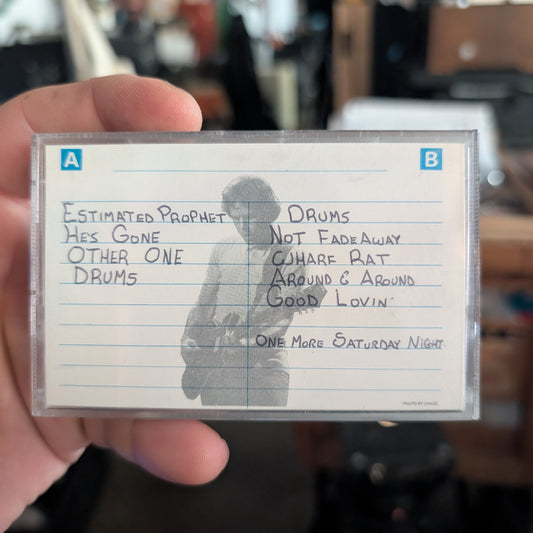 A
B
ESTIMATED PROPHET
HES GONE
OTHER ONE
DRUMS
DRUMS
NOT FADE AWAY
WHARF RAT
AROUND & AROUND
GOOD LOVIN'
ONE MORE SATURDAY NIGHT